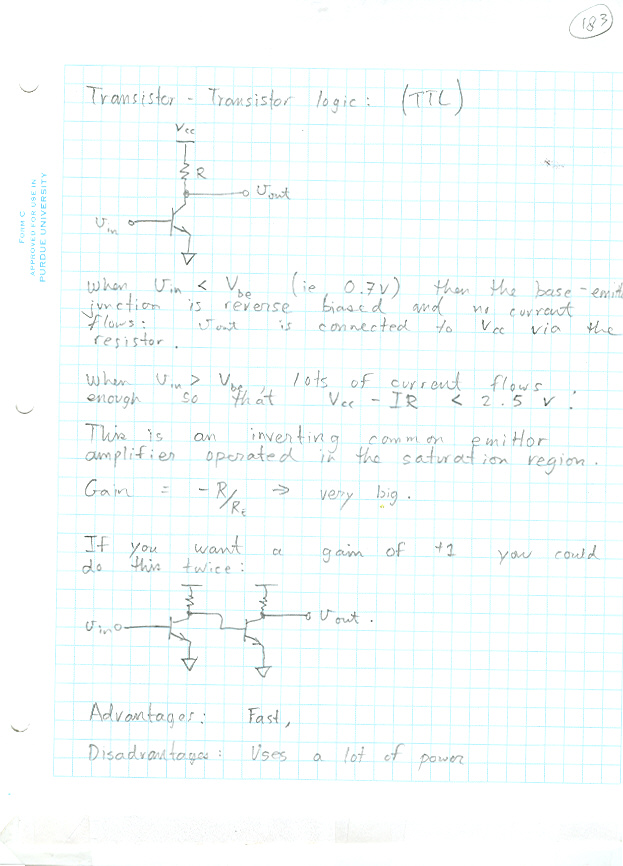 183
Transistor - Transistor logic: (TTL)
Vcc
R
Vout
Vin
FORM C
APPROVED FOR USE IN
PURDUE UNIVERSITY
when Vin < Vbe (ie 0.7V) then the base-emitt
junction is reverse biased and no current
flows: Vout is connected to Vcc via the
resistor.
when Vin > Vbe, lots of current flows
enough so that Vcc - IR < 2.5 V:
This is an inverting common emittor
amplifier operated in the saturation region.
Gain = -R/RE ⇒ very big.
If you want a gain of +1 you could
do this twice:
Vin
Vout.
Advantages: Fast,
Disadvantages: Uses a lot of power